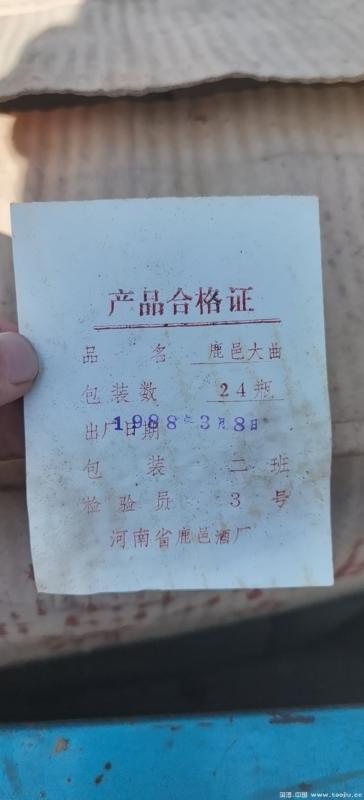 产品合格证
品名 鹿邑大曲
包装数 24瓶
出厂日期 1988年3月8日
包装 二班
检验员 3号
河南省鹿邑酒厂
淘酒.中国 www.taojiu.cc